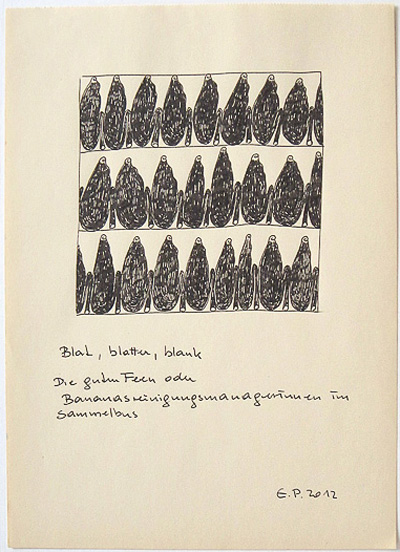 Blat, blatter, blank
Die guten Feen oder
Bananasreinigungsmanagerinnen im
Sammelbus
E.P. 2012